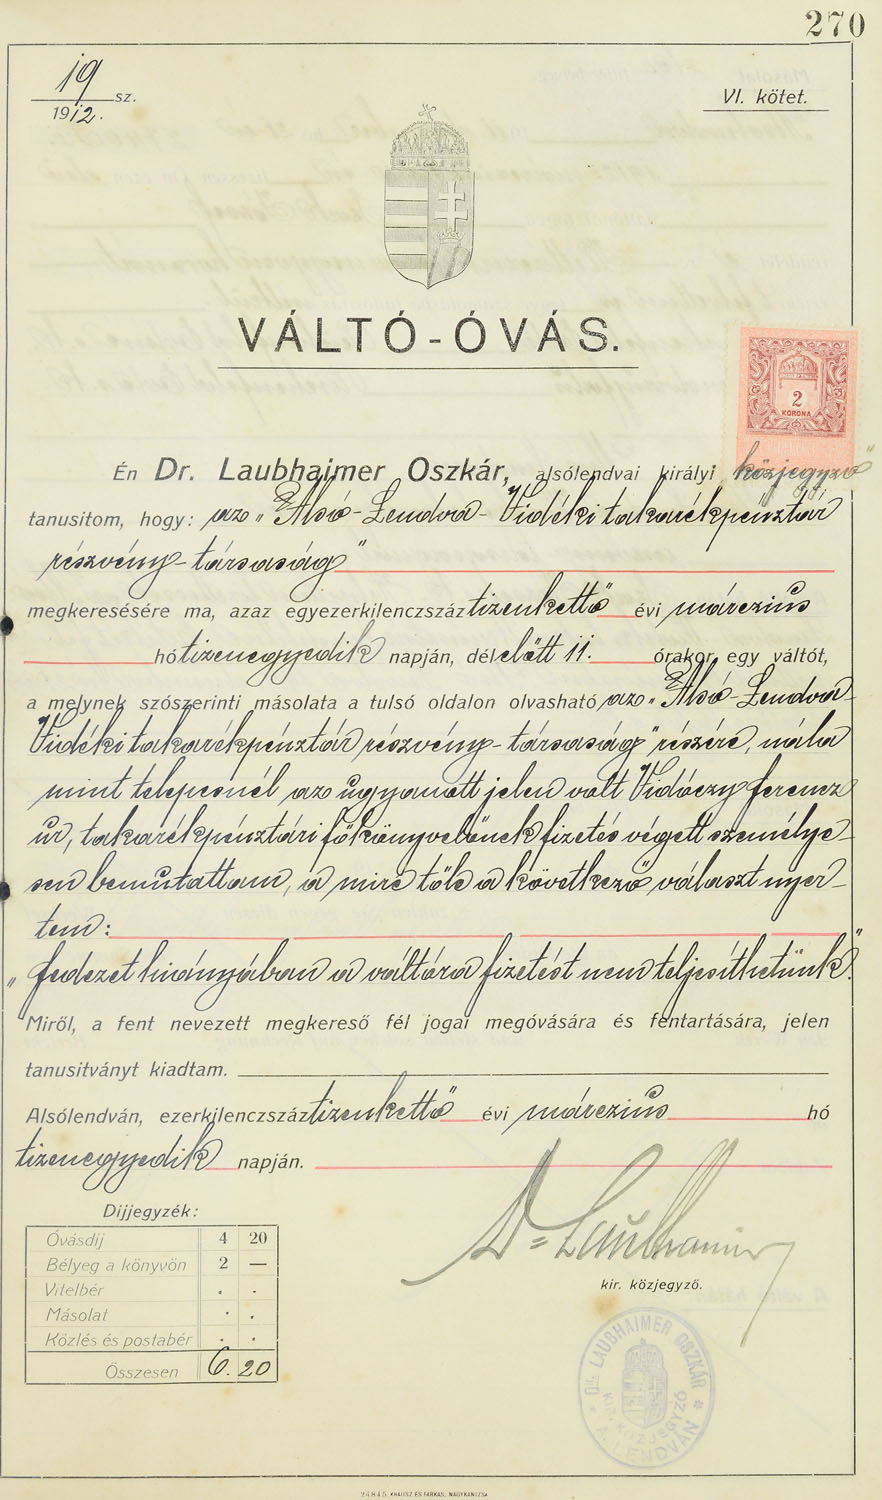 270
19 sz.
1912.
VI. kötet.
VÁLTÓ-ÓVÁS.
2
KORONA
Én Dr. Laubhaimer Oszkár, alsólendvai királyi közjegyző
tanusitom, hogy: az „Alsó-Lendva-Vidéki takarékpénztár
részvény-társaság"
megkeresésére ma, azaz egyezerkilenczszáz tizenkettő évi márczius
hó tizenegyedik napján, délelőtt 11. órakor egy váltót,
a melynek szószerinti másolata a tulsó oldalon olvasható az „Alsó-Lendva-
Vidéki takarékpénztár részvény-társaság" részére, nála
mint telepesnél az ugyanott jelen volt Vidóczy Ferencz
úr, takarékpénztári főkönyvelőnek fizetés végett személye-
sen bemutattam, a mire tőle a következő választ nyer-
tem:
„Fedezet hiányában a váltóra fizetést nem teljesíthetünk."
Miről, a fent nevezett megkereső fél jogai megóvására és fentartására, jelen
tanusitványt kiadtam.
Alsólendván, ezerkilenczszáz tizenkettő évi márczius hó
tizenegyedik napján.
Dr Laubhaimer
kir. közjegyző.
Dijjegyzék:
Óvásdij 4 20
Bélyeg a könyvön 2 —
Vitelbér . .
Másolat . .
Közlés és postabér . .
Összesen 6. 20
DR. LAUBHAIMER OSZKÁR
KIR. KÖZJEGYZŐ
A. LENDVÁN
24845 KRAUSZ ÉS FARKAS, NAGYKANIZSA